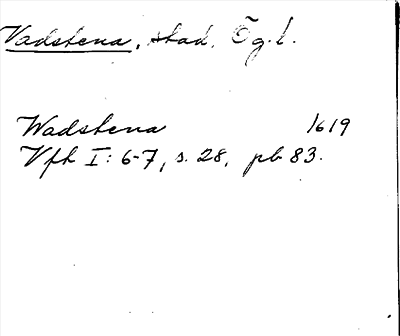 Vadstena, stad, Ög. l.
Wadstena 1619
Vfk I: 6-7, s. 28, pb 83.